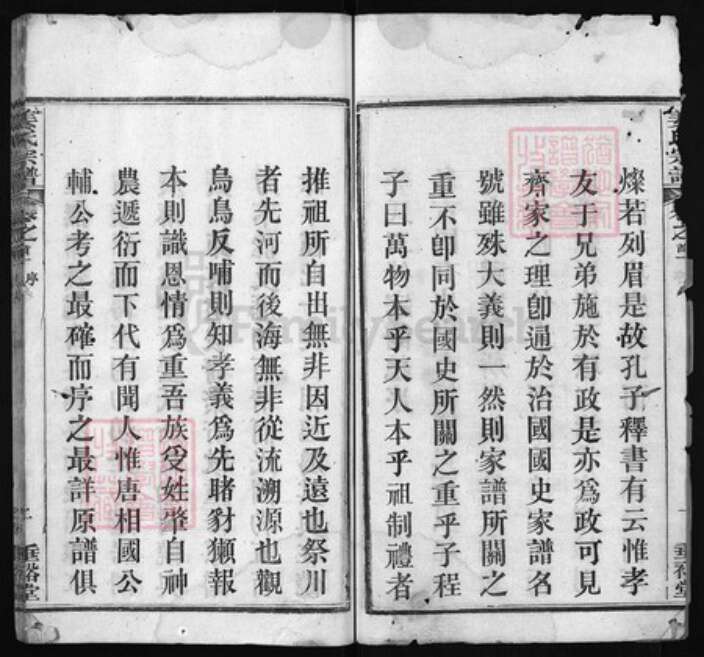 燦若列眉是故孔子釋書有云惟孝
友于兄弟施於有政是亦爲政可見
齊家之理卽通於治國國史家譜名
號雖殊大義則一然則家譜所關之
重不卽同於國史所關之重乎子程
子曰萬物本乎天人本乎祖制禮者
推祖所自出無非因近及遠也祭川
者先河而後海無非從流溯源也觀
烏鳥反哺則知孝義爲先睹豺獺報
本則識恩情爲重吾族受姓肇自神
農遞衍而下代有聞人惟唐相國公
輔公考之最確而序之最詳原譜俱
姜氏宗譜
卷之首
序
垂裕堂
FamilySearch